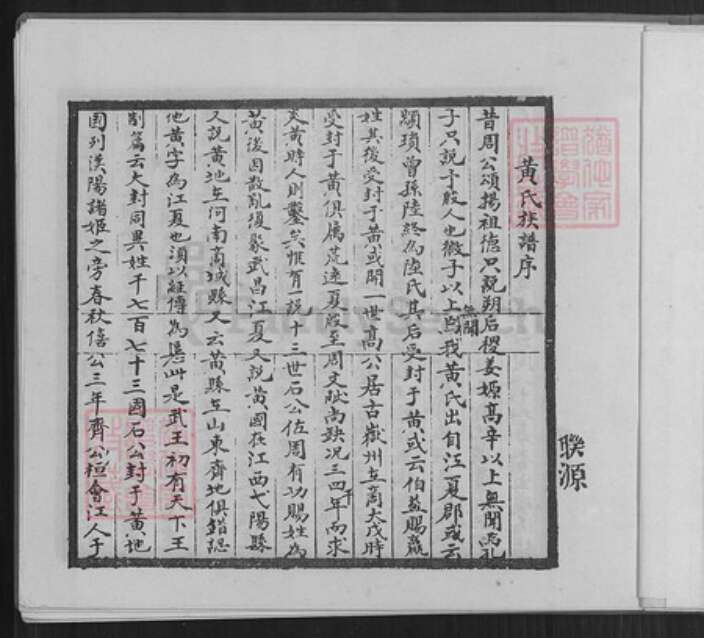 黃氏族譜序
昔周公頌揚祖德只說朔后稷姜嫄高辛以上無聞焉孔
子只說予殷人也微子以上無聞我黃氏出自江夏郡或云
顓頊曾孫陸終為陸氏其后受封于黃或云伯益賜嬴
姓其後受封于黃或開一世高公居古嶽州在商大戊時
受封于黃俱屬茫遠夏殷至周文獻尚缺況三四千年而求
炎黃時人則鑿矣惟有一說十三世石公佐周有功賜姓為
黃後因散亂復聚武昌江夏又說黃國在江西弋陽縣
又說黃地在河南商城縣又云黃縣在山東齊地俱錯認
他黃字為江夏也須以經傳為憑此是武王初有天下王
制篇云大封同異姓千七百七十三國石公封于黃地
國列漢陽諸姬之旁春秋僖公三年齊公桓會江人于
聯源